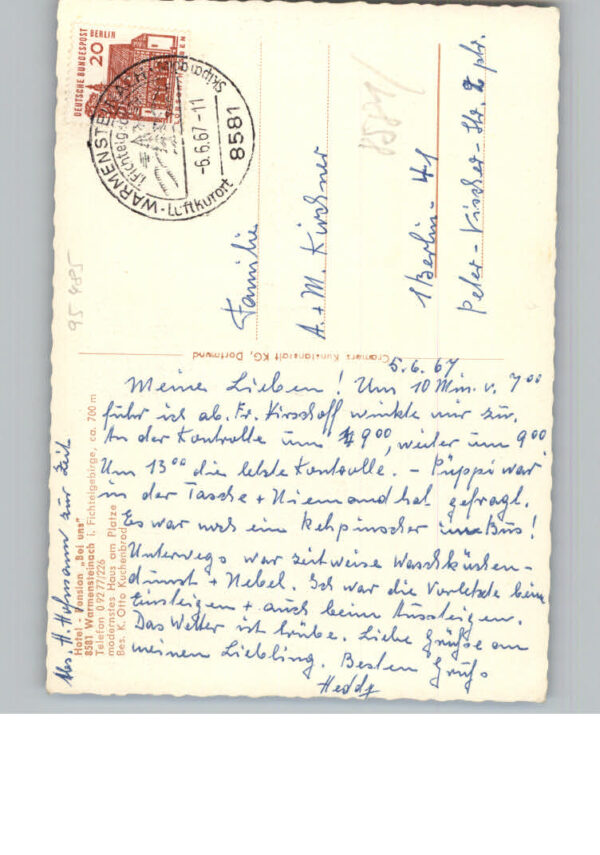 DEUTSCHE BUNDESPOST BERLIN
20
WARMENSTEINACH
(Fichtelgeb
Skiparadies
-6.6.67-11
8581
Luftkurort
8581
95 4885
Familie
A. + M. Kirschner
1 Berlin - 41
Peter - Vischer - Str. 2 ptr.
Cramers Kunstanstalt KG, Dortmund
5.6.67
Meine Lieben! Um 10 Min. v. 7⁰⁰
fuhr ich ab. Fr. Kirschoff winkte mir zu.
An der Kontrolle um 9⁰⁰, weiter um 9⁰⁰
Um 13⁰⁰ die letzte Kontrolle. - Püppi war
in der Tasche + Niemand hat gefragt.
Es war noch ein Rehpinscher im Bus!
Unterwegs war zeitweise Waschküchen-
dunst + Nebel. Ich war die Vorletzte beim
Einsteigen + auch beim Aussteigen.
Das Wetter ist trübe. Liebe Grüße an
meinen Liebling. Besten Gruß
Heddy
Abs. H. Hofmann zur Zeit
Hotel - Pension „Bei uns"
8581 Warmensteinach i. Fichtelgebirge, ca. 700 m
Telefon 0 92 77/226
modernstes Haus am Platze
Bes. K. Otto Kuchenbrod